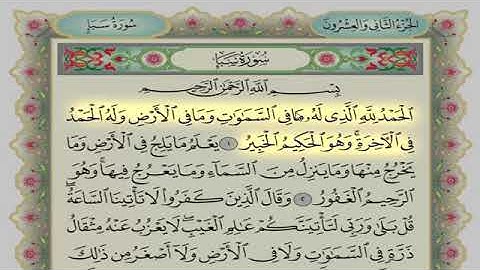 الجزء الثاني والعشرون
سورة سبإ
سورة سبإ
بسم الله الرحمن الرحيم
ٱلْحَمْدُ لِلَّهِ ٱلَّذِى لَهُۥ مَا فِى ٱلسَّمَـٰوَٰتِ وَمَا فِى ٱلْأَرْضِ وَلَهُ ٱلْحَمْدُ
فِى ٱلْـَٔاخِرَةِ ۚ وَهُوَ ٱلْحَكِيمُ ٱلْخَبِيرُ ١ يَعْلَمُ مَا يَلِجُ فِى ٱلْأَرْضِ وَمَا
يَخْرُجُ مِنْهَا وَمَا يَنزِلُ مِنَ ٱلسَّمَآءِ وَمَا يَعْرُجُ فِيهَا ۚ وَهُوَ
ٱلرَّحِيمُ ٱلْغَفُورُ ٢ وَقَالَ ٱلَّذِينَ كَفَرُوا۟ لَا تَأْتِينَا ٱلسَّاعَةُ ۖ
قُلْ بَلَىٰ وَرَبِّى لَتَأْتِيَنَّكُمْ عَـٰلِمِ ٱلْغَيْبِ ۖ لَا يَعْزُبُ عَنْهُ مِثْقَالُ
ذَرَّةٍ فِى ٱلسَّمَـٰوَٰتِ وَلَا فِى ٱلْأَرْضِ وَلَآ أَصْغَرُ مِن ذَٰلِكَ